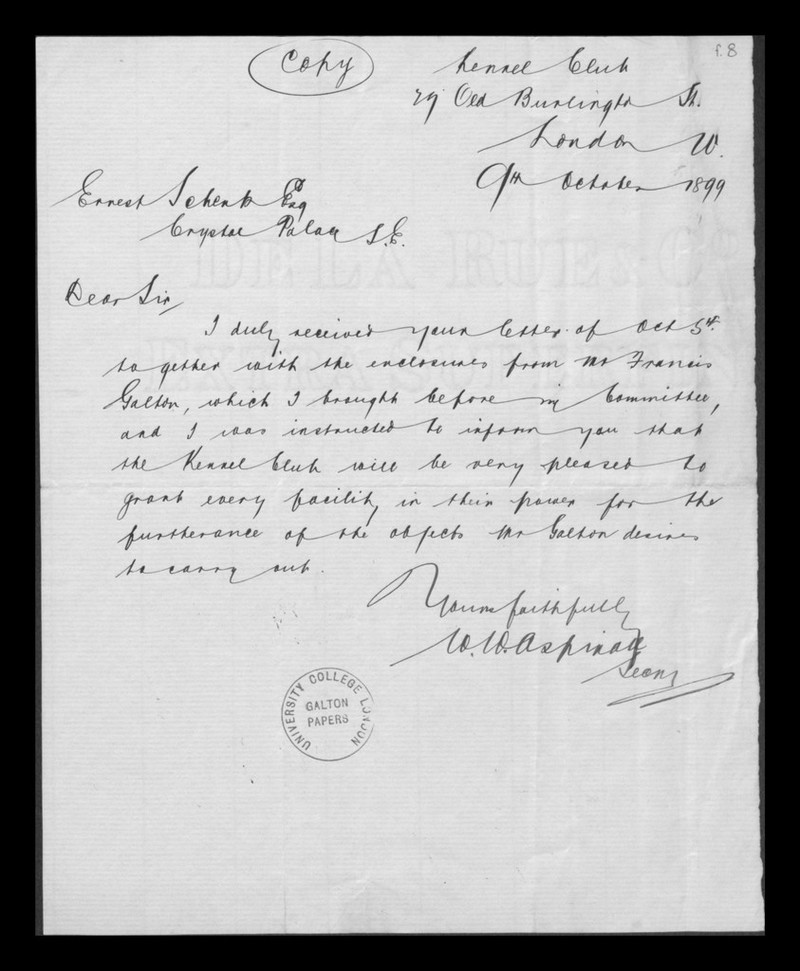 f. 8
Copy
Kennel Club
29 Old Burlington St.
London W.
9th October 1899
Ernest Schenk Esq
Crystal Palace S.E.
Dear Sir,
I duly received your letter of Oct 5th
together with the enclosures from Mr Francis
Galton, which I brought before my Committee,
and I was instructed to inform you that
the Kennel Club will be very pleased to
grant every facility in their power for the
furtherance of the objects Mr Galton desires
to carry out.
Yours faithfully
W. W. Aspinall
Secry
UNIVERSITY COLLEGE LONDON
GALTON
PAPERS
DE LA RUE & CO